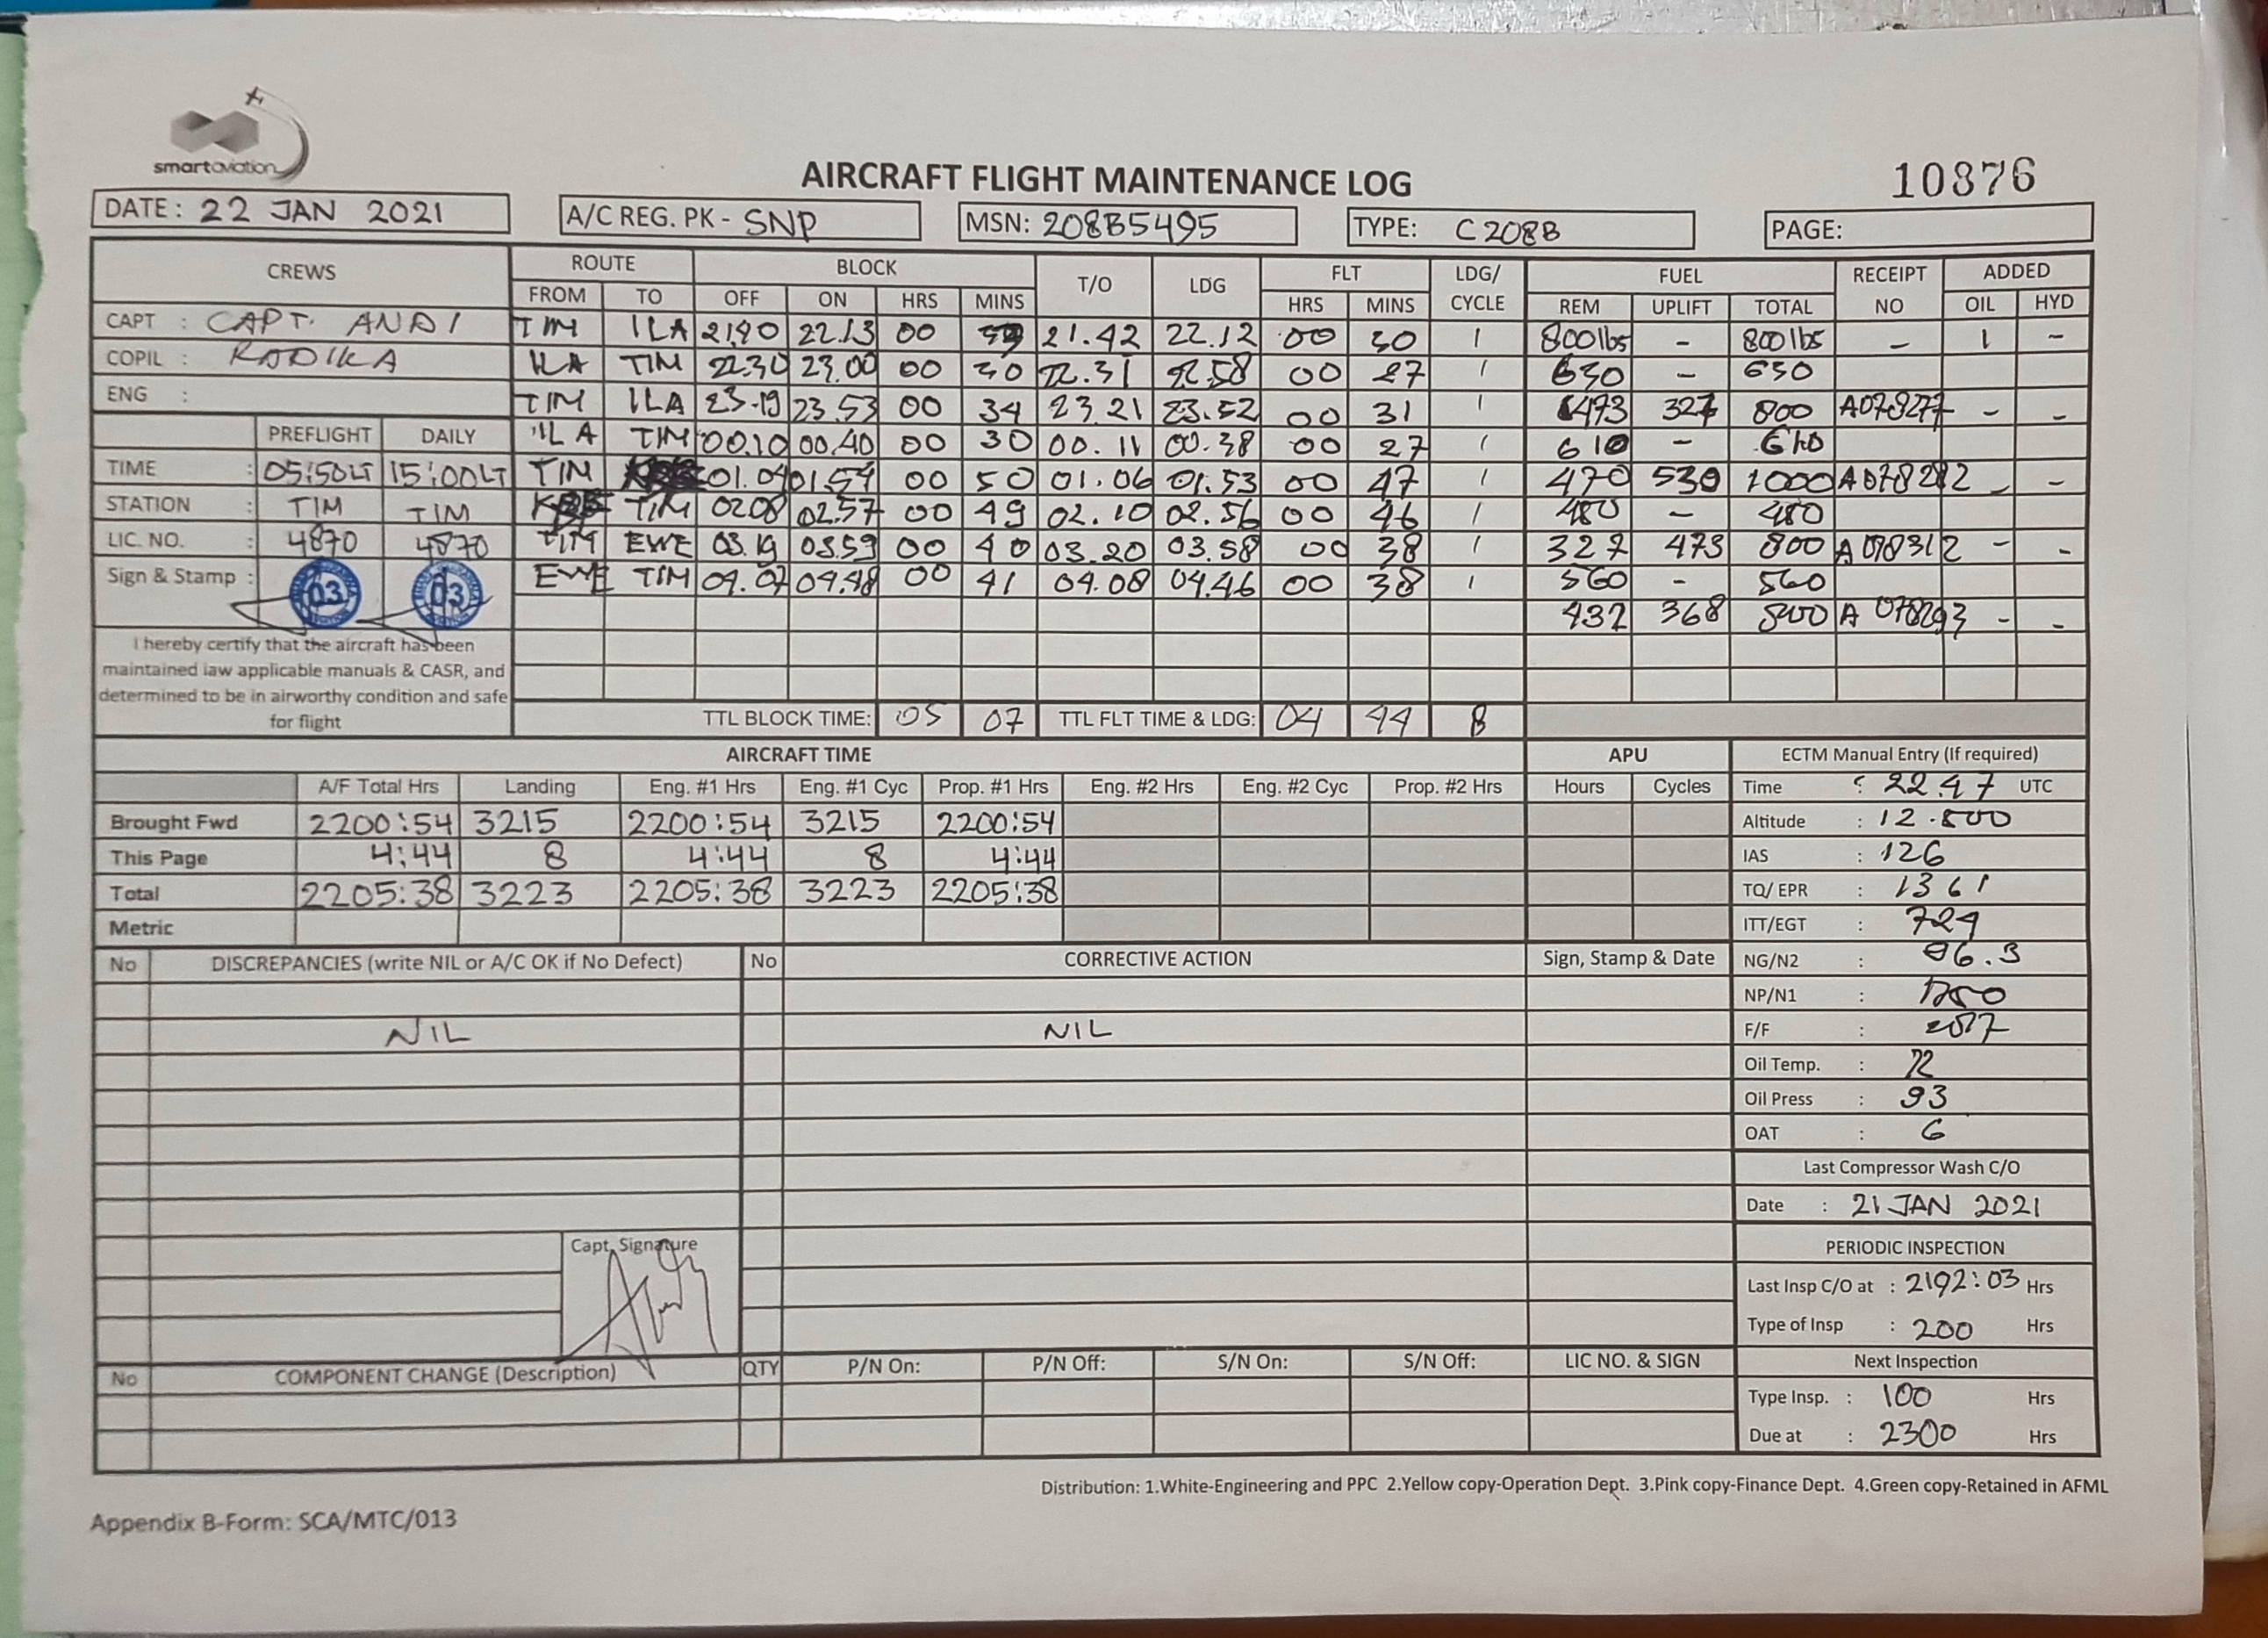 smartaviation
AIRCRAFT FLIGHT MAINTENANCE LOG
10876
DATE : 22 JAN 2021
A/C REG. PK - SNP
MSN: 208B5495
TYPE: C208B
PAGE:
CREWS ROUTE BLOCK T/O LDG FLT LDG/ CYCLE FUEL RECEIPT NO ADDED
FROM TO OFF ON HRS MINS HRS MINS REM UPLIFT TOTAL OIL HYD
CAPT : CAPT. ANDI
COPIL : RADIKA
ENG :
TIM ILA 21.40 22.13 00 21.42 22.12 00 30 1 800lbs - 800lbs - 1 -
ILA TIM 22.30 23.00 00 30 22.31 22.58 00 27 1 630 - 630
TIM ILA 23.19 23.53 00 34 23.21 23.52 00 31 1 473 327 800 A078277 - -
ILA TIM 00.10 00.40 00 30 00.11 00.38 00 27 1 610 - 610
TIM 01.04 01.54 00 50 01.06 01.53 00 47 1 470 530 1000 A078282 - -
TIM 02.08 02.57 00 49 02.10 02.56 00 46 1 480 - 480
TIM EWE 03.19 03.59 00 40 03.20 03.58 00 38 1 327 473 800 A078312 - -
EWE TIM 04.07 04.48 00 41 04.08 04.46 00 38 1 560 - 560
432 368 800 A 078293 - -
PREFLIGHT DAILY
TIME : 05:50LT 15:00LT
STATION : TIM TIM
LIC. NO. : 4870 4870
Sign & Stamp : 03 03
I hereby certify that the aircraft has been
maintained iaw applicable manuals & CASR, and
determined to be in airworthy condition and safe
for flight
TTL BLOCK TIME: 05 07 TTL FLT TIME & LDG: 04 44 8
AIRCRAFT TIME APU
A/F Total Hrs Landing Eng. #1 Hrs Eng. #1 Cyc Prop. #1 Hrs Eng. #2 Hrs Eng. #2 Cyc Prop. #2 Hrs Hours Cycles
Brought Fwd 2200:54 3215 2200:54 3215 2200:54
This Page 4:44 8 4:44 8 4:44
Total 2205:38 3223 2205:38 3223 2205:38
Metric
ECTM Manual Entry (If required)
Time : 22.47 UTC
Altitude : 12.500
IAS : 126
TQ/ EPR : 1361
ITT/EGT : 724
NG/N2 : 96.3
NP/N1 : 1750
F/F :
Oil Temp. : 72
Oil Press : 93
OAT : 6
Last Compressor Wash C/O
Date : 21 JAN 2021
PERIODIC INSPECTION
Last Insp C/O at : 2192:03 Hrs
Type of Insp : 200 Hrs
Next Inspection
Type Insp. : 100 Hrs
Due at : 2300 Hrs
No DISCREPANCIES (write NIL or A/C OK if No Defect) No CORRECTIVE ACTION Sign, Stamp & Date
NIL NIL
Capt, Signature
No COMPONENT CHANGE (Description) QTY P/N On: P/N Off: S/N On: S/N Off: LIC NO. & SIGN
Distribution: 1.White-Engineering and PPC 2.Yellow copy-Operation Dept. 3.Pink copy-Finance Dept. 4.Green copy-Retained in AFML
Appendix B-Form: SCA/MTC/013